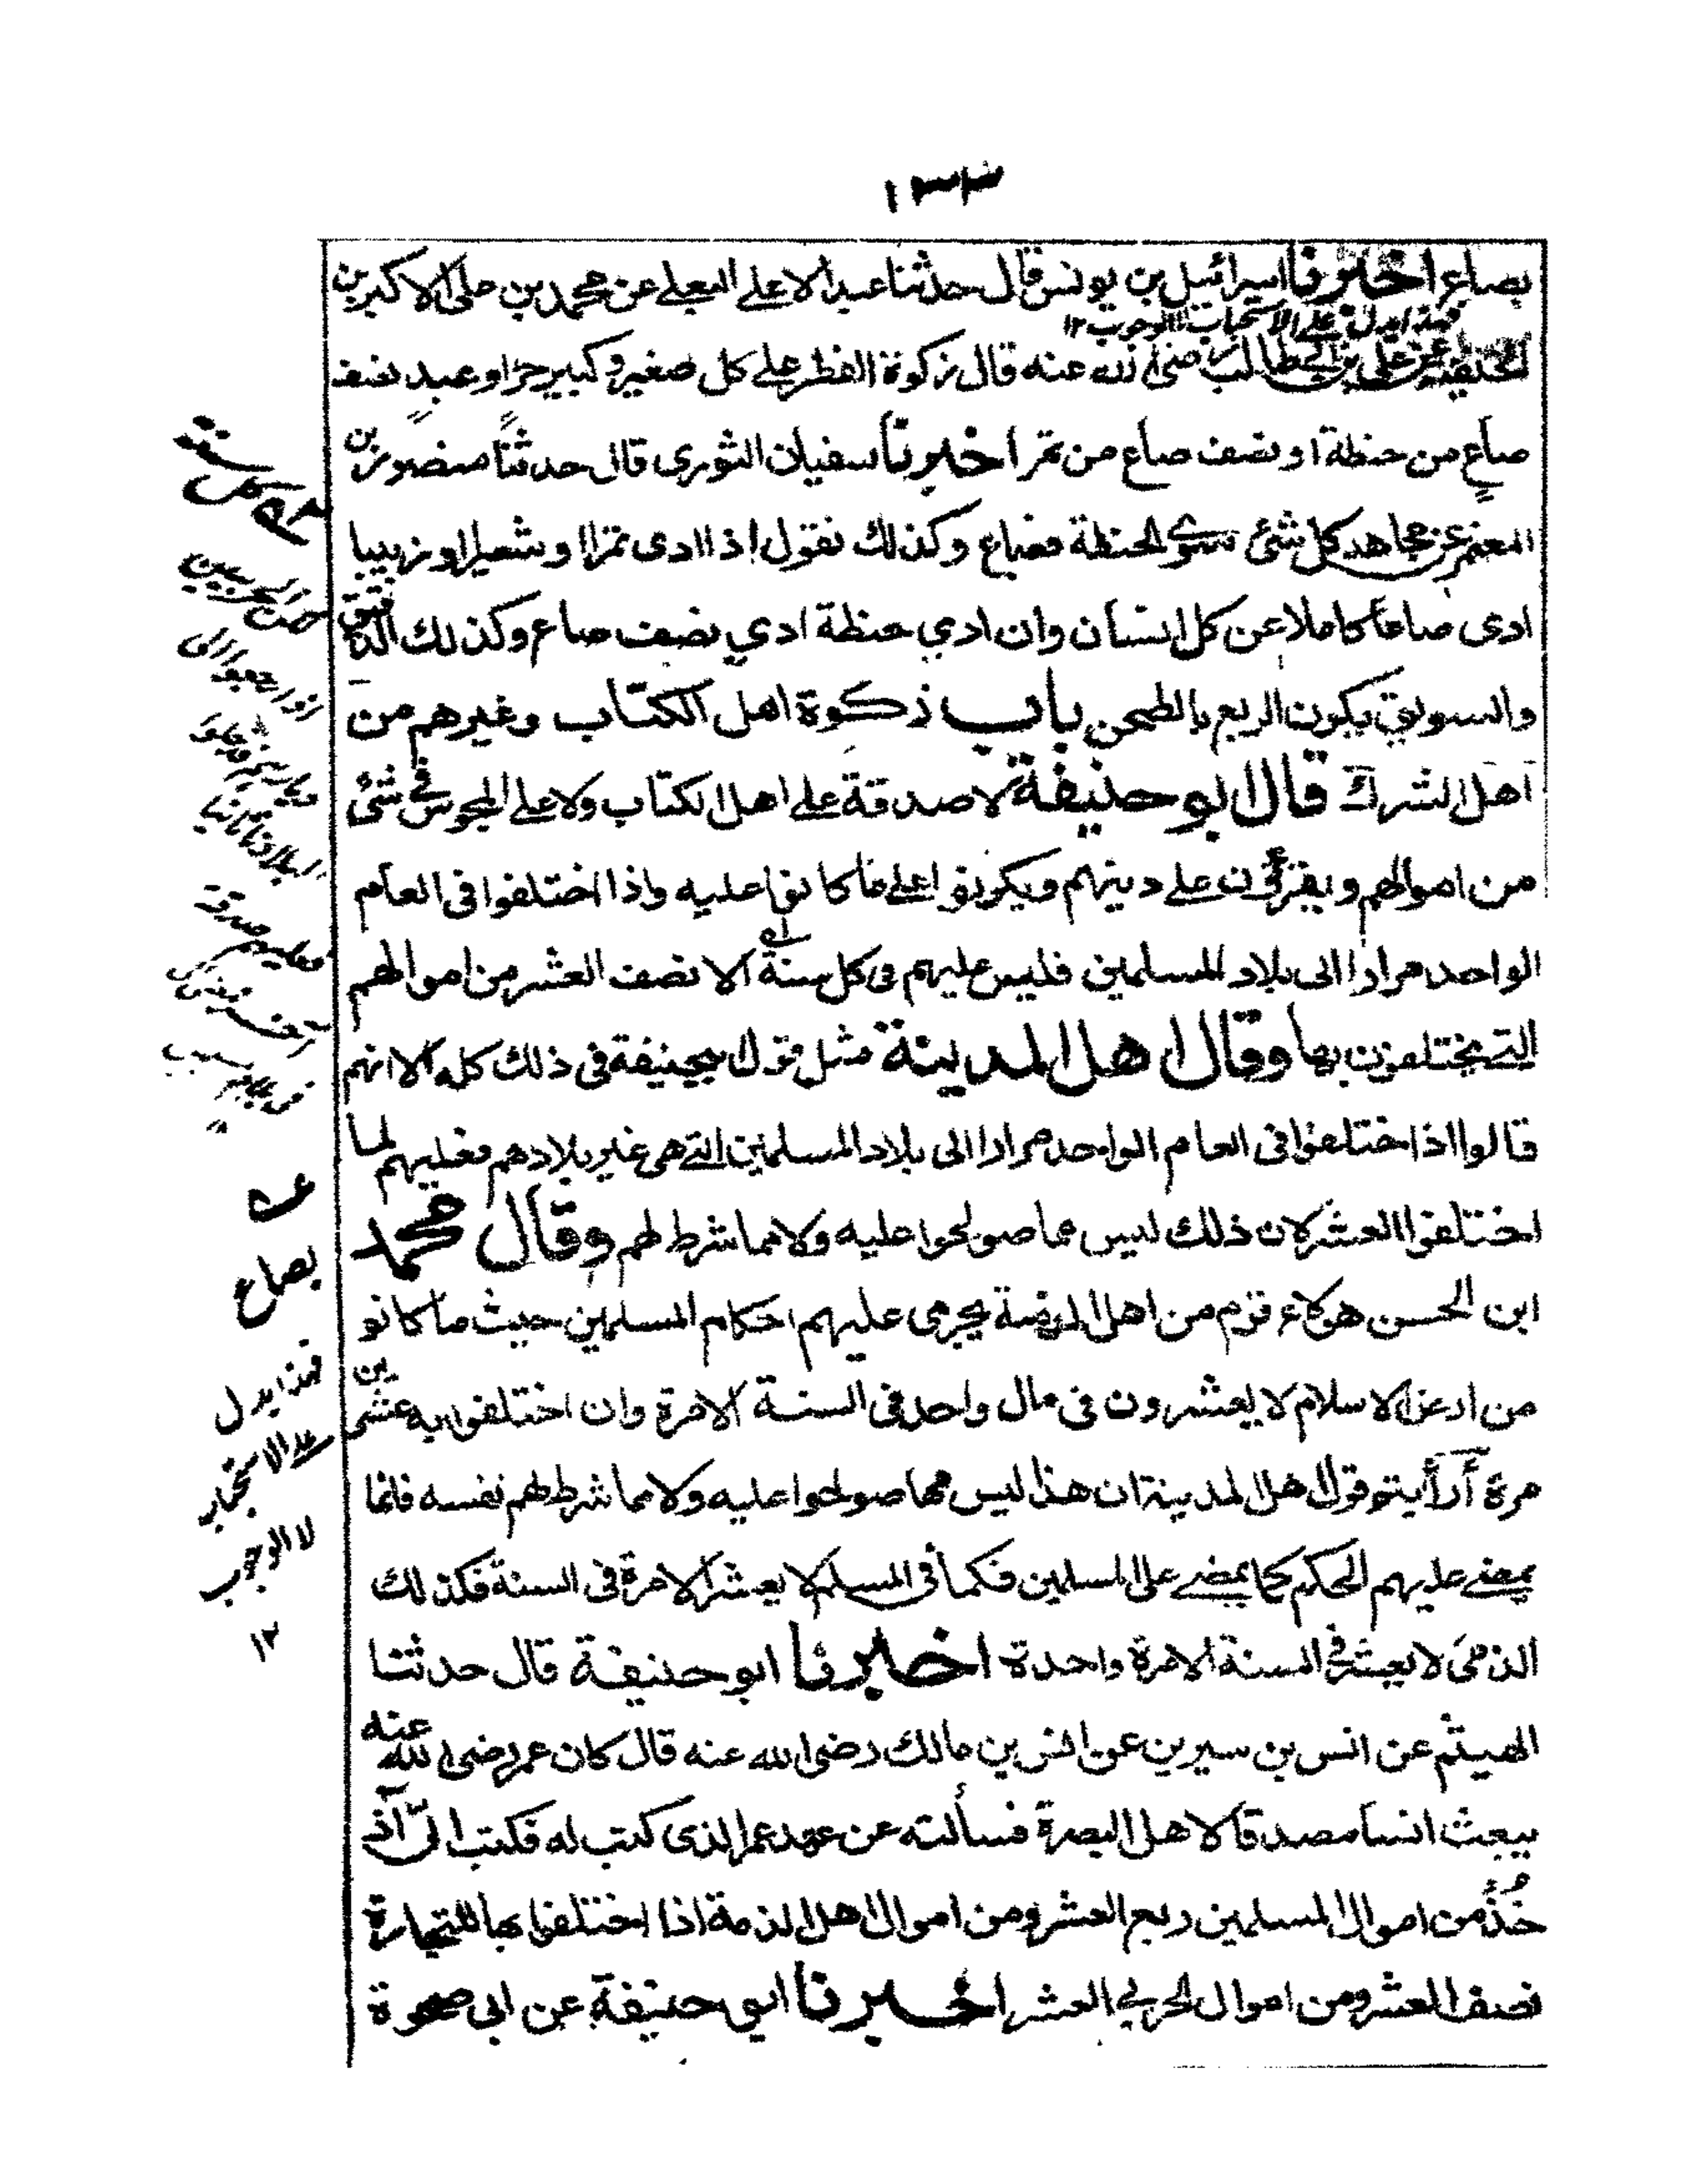 ١٣٣
بصاع اخبرنا اسرائيل بن يونس قال حدثنا عبد الاعلى الثعلبي عن محمد بن على الاكبر بن
فهذا يدل على الاستحباب لا الوجوب ١٢
الحنفية عن على بن ابي طالب رضى الله عنه قال زكوة الفطر على كل صغير وكبير حرا وعبد نصف
صاع من حنظة او نصف صاع من تمر اخبرنا سفيان الثورى قال حدثنا منصور بن
المعتمر عن مجاهد كل شئ سوى الحنظة فصاع وكذلك نقول اذا ادى تمرا او شعيرا او زبيبا
ادى صاعا كاملا عن كل انسان وان ادي حنظة ادي نصف صاع وكذلك الدقيق
والسويق يكون الربع بالطحن باب زكوة اهل الكتاب وغيرهم من
اهل الشرك قال ابو حنيفة لا صدقة على اهل الكتاب ولا على المجوس فى شئ
من اموالهم ويقرون على دينهم ويكونوا على ما كانوا عليه واذا اختلفوا فى العام
الواحد مرارا الى بلاد المسلمين فليس عليهم فى كل سنة الا نصف العشر من اموالهم
التى يختلفون بها وقال اهل المدينة مثل قول ابيحنيفة فى ذلك كله الا انهم
قالوا اذا اختلفوا فى العام الواحد مرارا الى بلاد المسلمين التى هى غير بلادهم فعليهم لما
اختلفوا العشر لان ذلك ليس مما صولحوا عليه ولا مما شرط لهم وقال محمد
ابن الحسن هؤلاء قوم من اهل الذمة يجرى عليهم احكام المسلمين حيث ما كانو
من ارض الاسلام لا يعشرون فى مال واحد فى السنة الا مرة وان اختلفوا به عشرين
مرة أرأيتم قول اهل المدينة ان هذا ليس مما صولحوا عليه ولا مما شرط لهم نفسه فانما
يمضى عليهم الحكم كما يمضى على المسلمين فكما أن المسلم لا يعشر الا مرة فى السنة فكذلك
الذمى لا يعشر فى السنة الا مرة واحدة اخبرنا ابو حنيفة قال حدثنا
الهيثم عن انس بن سيرين عن انس بن مالك رضى الله عنه قال كان عمر رضى الله عنه
يبعث انسا مصدقا لاهل البصرة فسألته عن عهد عمر الذى كتب له فكتب الىّ أن
خُذْ من اموال المسلمين ربع العشر ومن اموال اهل الذمة اذا اختلفوا بها للتجارة
نصف العشر ومن اموال الحربي العشر اخبرنا ابو حنيفة عن ابى صخرة
بصاع
فهذا يدل
على الاستحباب
لا الوجوب
١٢